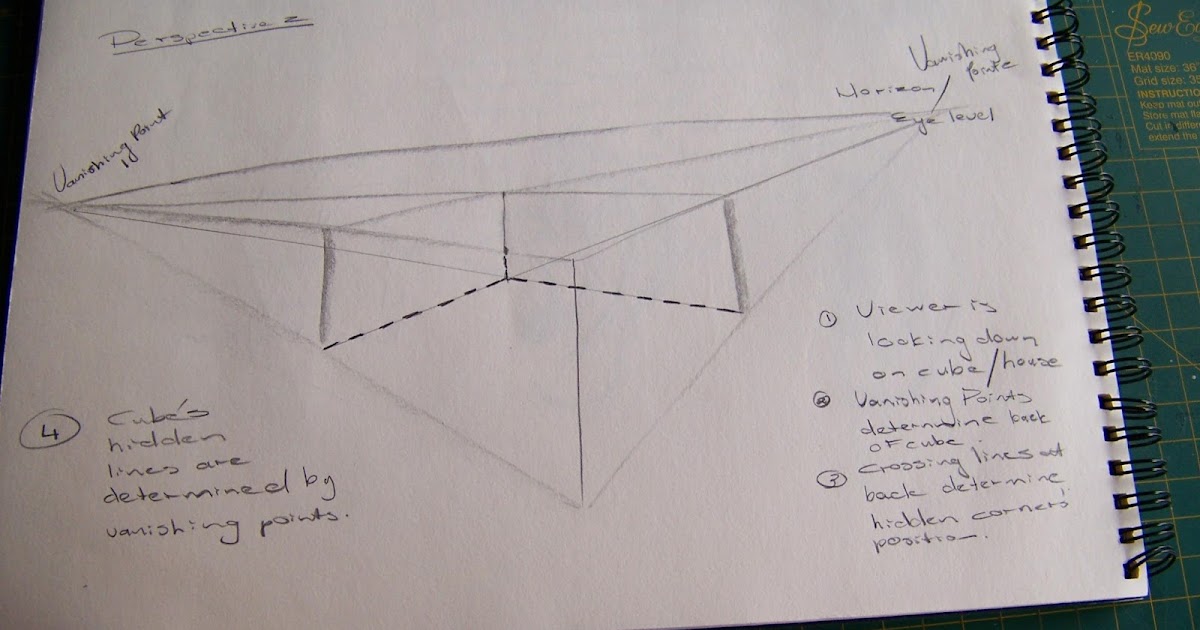 Perspective 2
Vanishing
Points
Horizon/
Eye level
Vanishing Point
① Viewer is
looking down
on cube/house
② Vanishing Points
determine back
of cube.
③ Crossing lines at
back determine
hidden corners'
position.
④ Cube's
hidden
lines are
determined by
vanishing points.
Sew E
ER4090
Mat size: 36
Grid size: 35
INSTRUCTIO
Keep mat ou
Store mat fla
Cut in differe
extend the